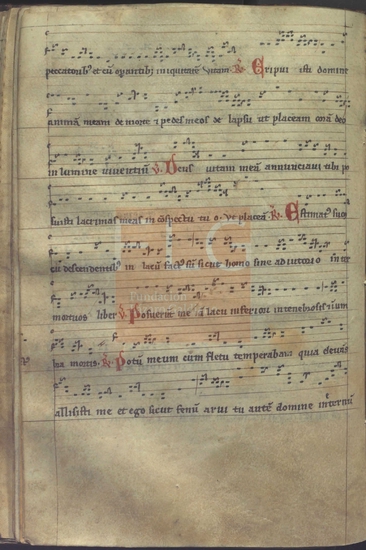 peccatoribꝰ et cū opantibꝫ iniquitatē vitam. R̃ Eripui isti domine
animā meam de morte ⁊ pedes meos de lapsu ut placeam corā deo
in lumine viventiū V. Deus vitam meā annunciavi tibi po
suisti lacrimas meas in ɔspectu tu o. Vt placeā. R̃ Estimatꝰ suꝫ
cū descendentibꝰ in lacū factꝰ sū sicut homo sine adiutorio inter
mortuos liber V. Posuerūt me in lacu inferiori in tenebrosis ⁊ in um
bra mortis. R̃ Potū meum cum fletu temperabam quia elevās
allisisti me et ego sicut fenū arui tu autē domine in eternū